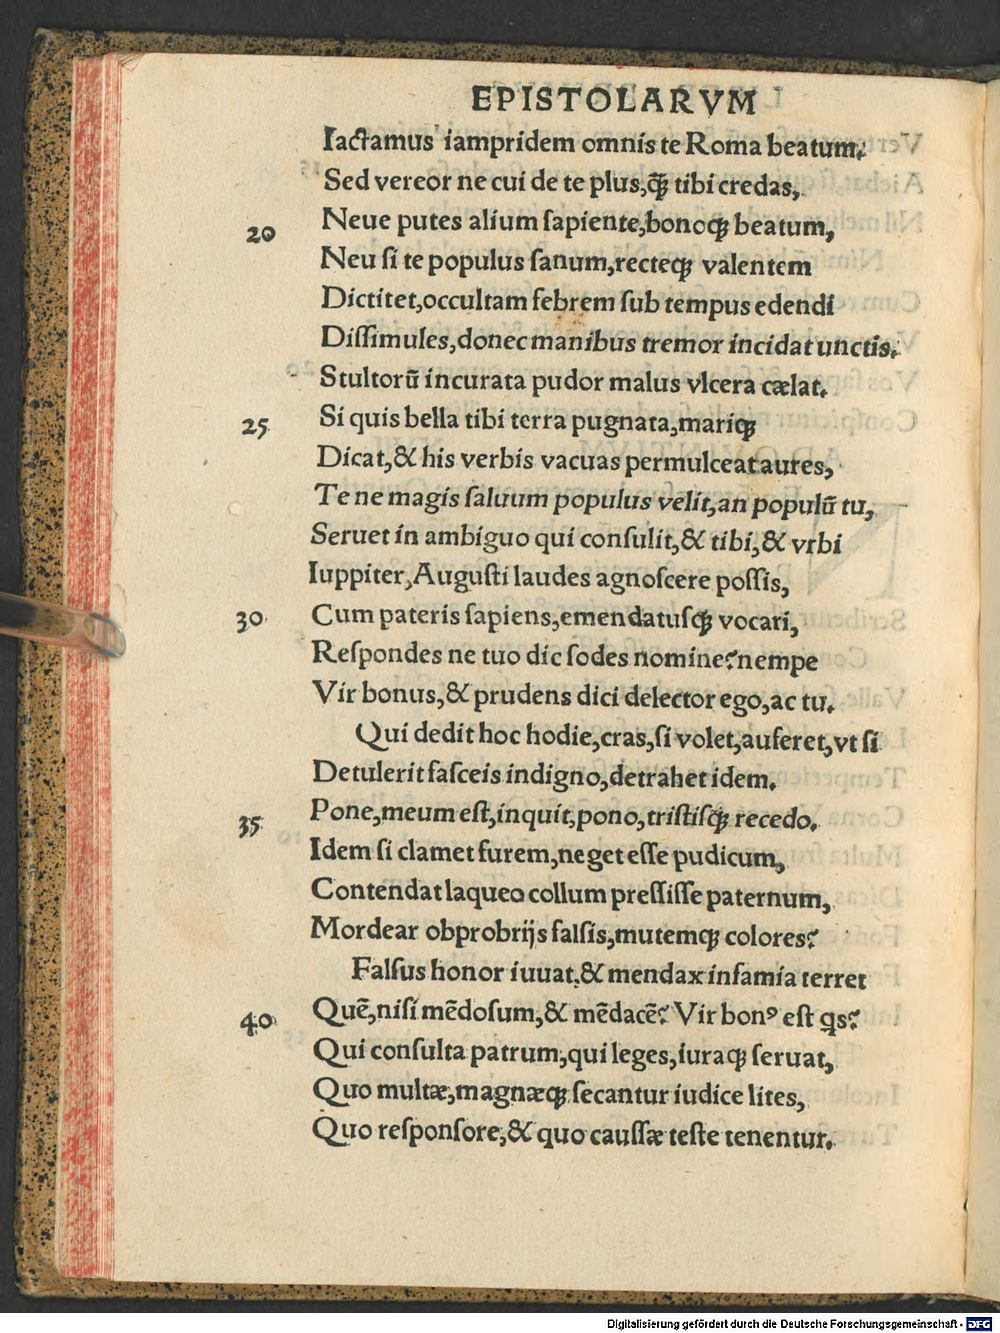 EPISTOLARVM
Iactamus iampridem omnis te Roma beatum.
Sed vereor ne cui de te plus,ꝗ̃ tibi credas,
20 Neue putes alium ſapiente,bonoqꝫ beatum,
Neu ſi te populus ſanum,recteqꝫ valentem
Dictitet,occultam febrem ſub tempus edendi
Diſſimules,donec manibus tremor incidat unctis.
Stultorũ incurata pudor malus vlcera cælat.
25 Si quis bella tibi terra pugnata,mariqꝫ
Dicat,& his verbis vacuas permulceat aures,
Te ne magis ſaluum populus velit,an populũ tu,
Seruet in ambiguo qui conſulit,& tibi,& vrbi
Iuppiter,Auguſti laudes agnoſcere poſſis,
30 Cum pateris ſapiens,emendatuſqꝫ vocari,
Reſpondes ne tuo dic ſodes nomine?nempe
Vir bonus,& prudens dici delector ego,ac tu.
Qui dedit hoc hodie,cras,ſi volet,auferet,vt ſi
Detulerit faſceis indigno,detrahet idem.
35 Pone,meum eſt,inquit,pono,triſtiſqꝫ recedo.
Idem ſi clamet furem,neget eſſe pudicum,
Contendat laqueo collum preſſiſſe paternum,
Mordear obprobrijs falſis,mutemqꝫ colores?
Falſus honor iuuat,& mendax infamia terret
40 Quẽ,niſi mẽdoſum,& mẽdacẽ? Vir bonꝰ eſt qs?
Qui conſulta patrum,qui leges,iuraqꝫ ſeruat,
Quo multæ,magnæqꝫ ſecantur iudice lites,
Quo reſponſore,& quo cauſſæ teſte tenentur.
Digitalisierung gefördert durch die Deutsche Forschungsgemeinschaft - DFG